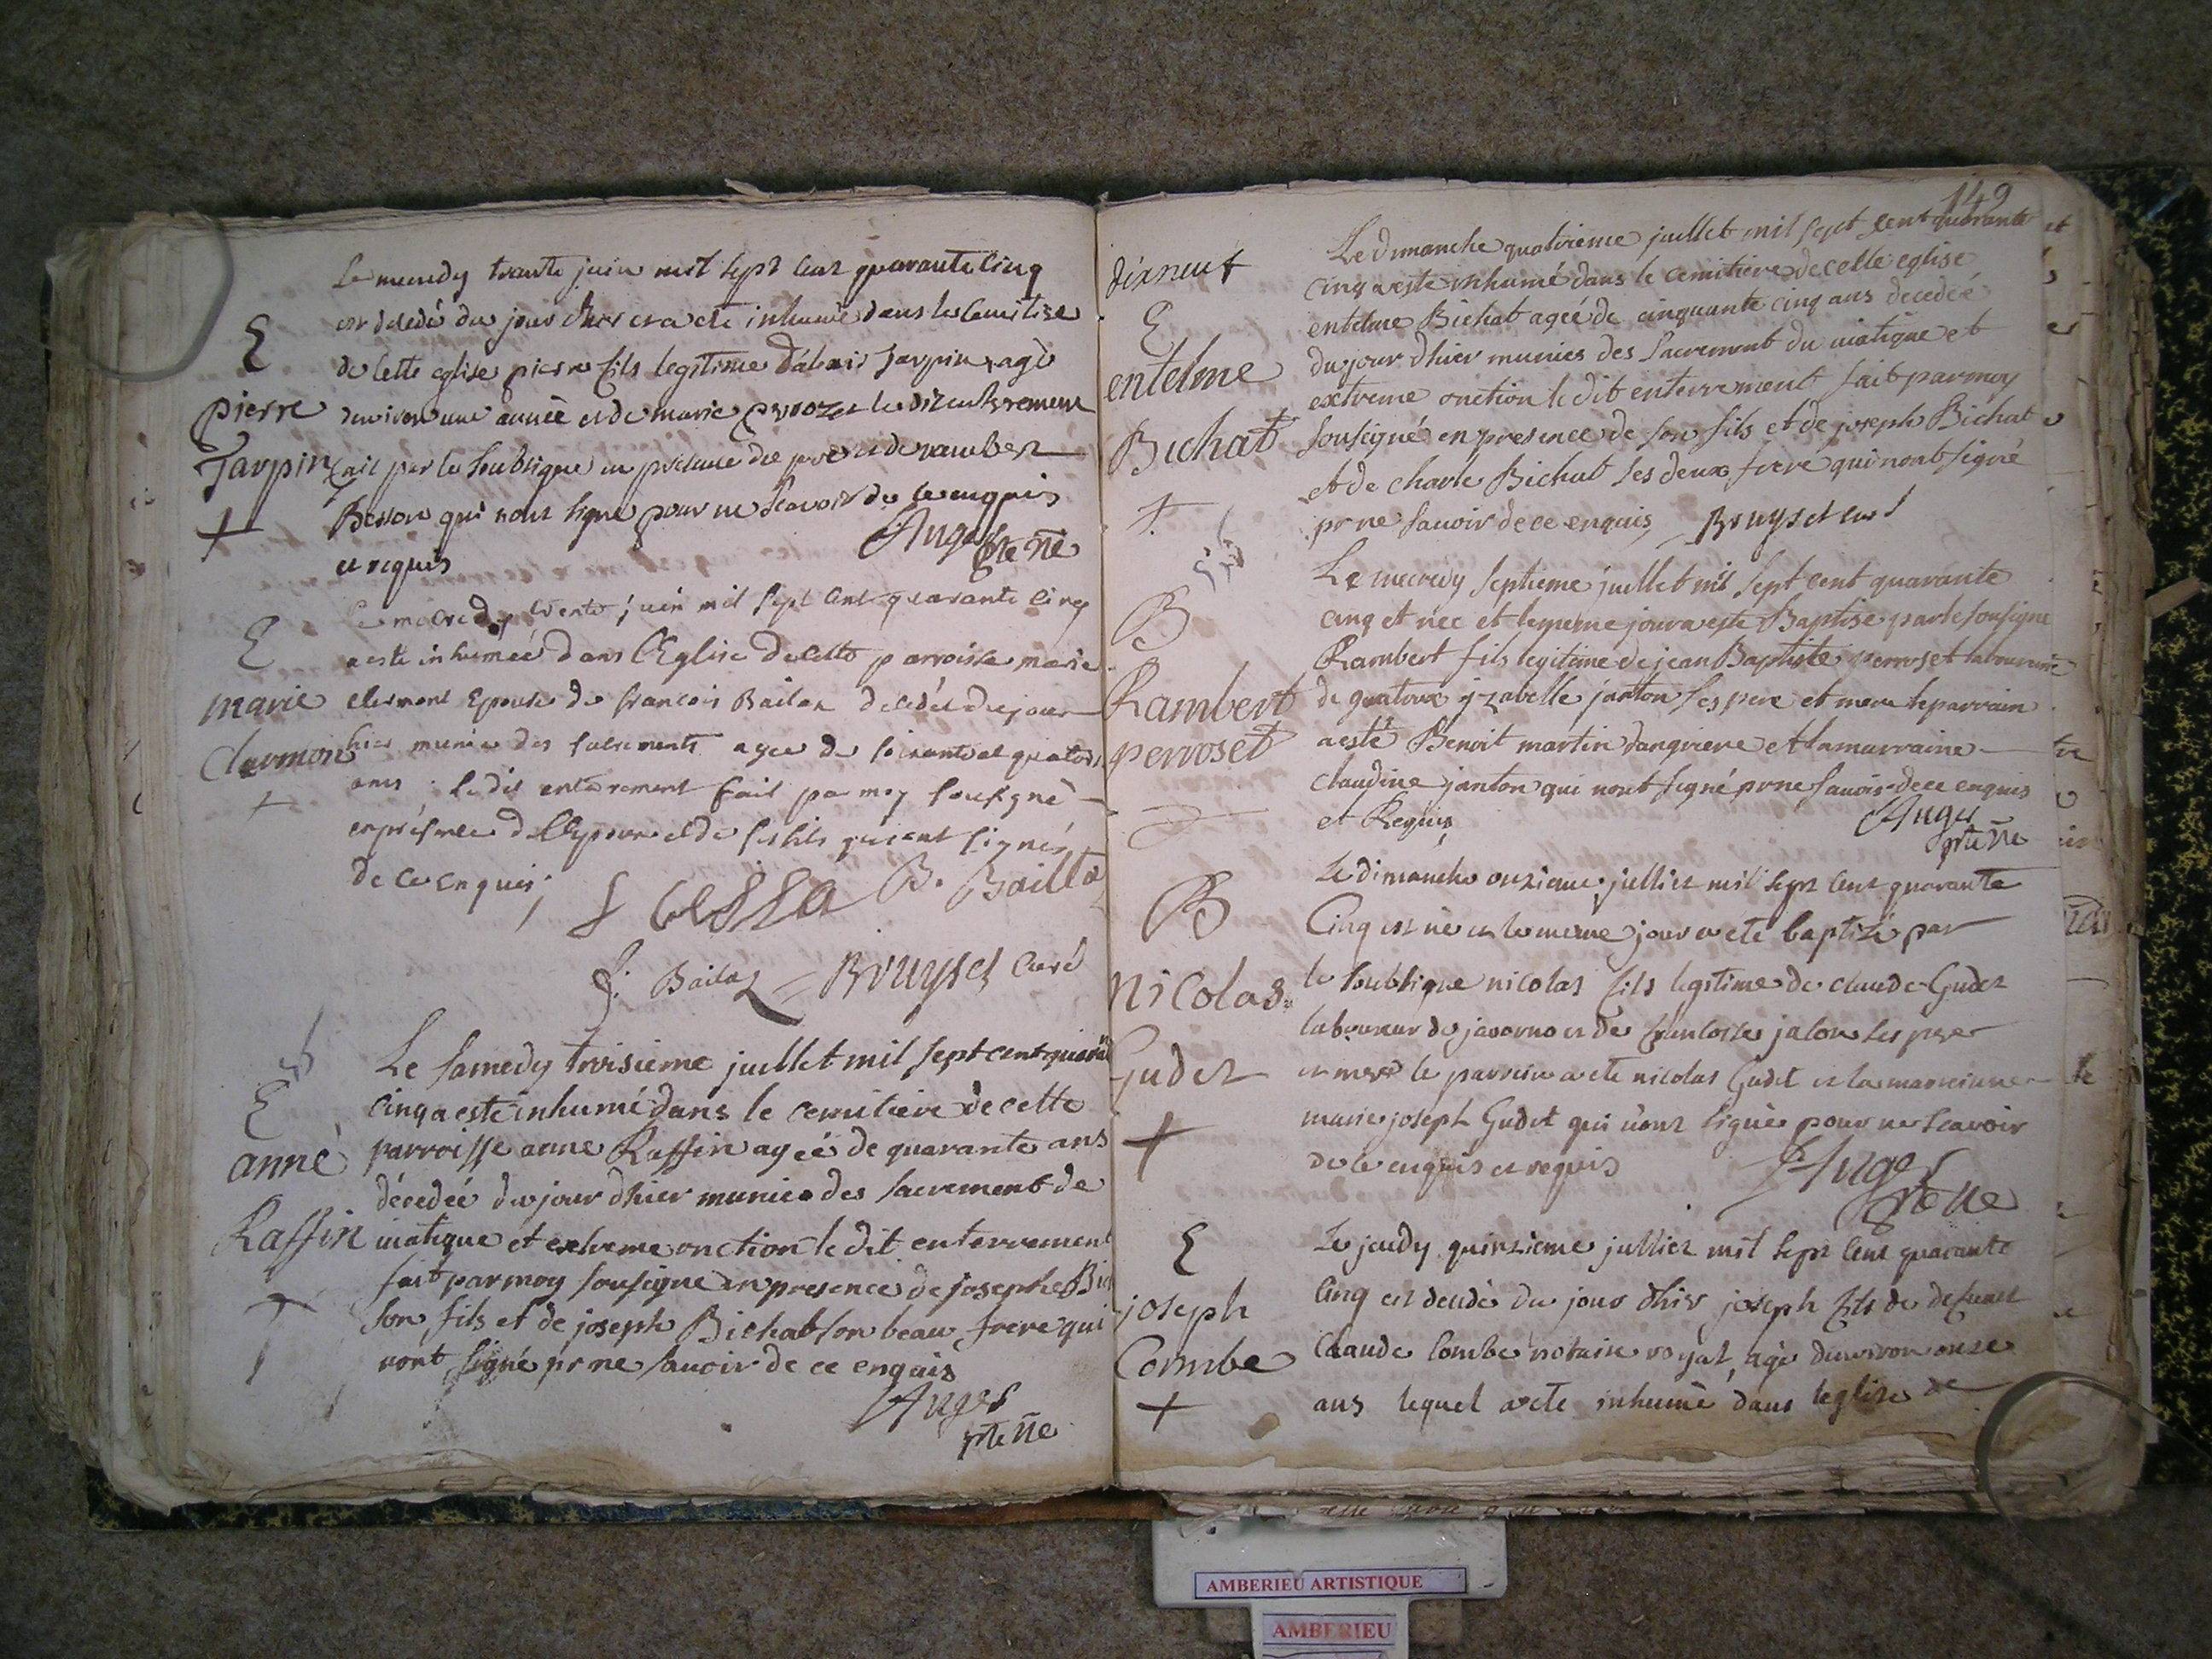 Le mecredy trante juin mil sept cent quarante cinq
est decedé du jour dhier et a ete inhumé dans le cemitiere
E
de cette eglise pierre fils legitime d'alexis Jarpin agé
pierre
denviron une année et de marie perrozet le dit enterrement
Jarpin
fait par le soubsigné en presence du pere et de rambert
+
Besson qui nont signe pour ne scavoir de ce enquis
et requis
Auger
ptre vre
Le mecredy trente juin mil sept cent quarante cinq
E
a este inhumée dans l'Eglise de cette parroisse marie
marie
clermont Epouse de francois Bailat decedée du jour
Clarmont
hier munie des sacrements agee de soixante et quatorze
+
ans ledit enterement fait par moy sousigné
en presence de l'epoux et de ses fils qui ont signés
de ce enquis
B. Baillat
f. Bailat Bruyset Curé
Le samedy troisieme juillet mil sept cent quarante
E
cinq a este inhumé dans le cemitiere de cette
anne
parroisse anne Raffin agée de quarante ans
décedée du jour dhier munie des sacrement de
Raffin
viatique et extreme onction le dit enterrement
fait par moy sousigné en presence de joseph Bi
son fils et de joseph Bichat son beau frere qui
nont signé pr ne sauoir de ce enquis
Auger
ptre vre
149
dixneuf
Le dimanche quatrieme juillet mil sept cent quarante
cinq a este inhumé dans le cemitiere de cette eglise
E
entelme Bichat ageé de cinquante cinq ans decedeé
entelme
du jour dhier munies des sacrement du viatique et
extreme onction le dit enterrement fait par moy
Bichat
sousigné en presence de son fils et de joseph Bichat
et de charle Bichat ses deux frere qui nont signé
+
pr ne sauoir de ce enquis Bruyset curé
Le mecredy septieme juillet mil sept cent quarante
B
cinq et née et le meme jour a este Baptise par le sousigne
Rambert fils legitime de jean Baptiste perroset laboureur
Rambert
de yzabelle janton ses pere et mere le parrain
perroset
a esté Benoit martin dangriere et la marraine
claudine janton qui nont signé pr ne sauoir de ce enquis
et Requis
Auger
ptre vre
Le dimanche onzieme julliet mil sept cent quarante
B
Cinq est né et le meme jour a ete baptizé par
nicolas
le soubsigné nicolas fils legitime de claude Gudet
laboureur de javornoz et de francoise jalon ses pere
Gudet
et mere le parrein a ete nicolas Gudet et la marreinne
+
marie joseph Gudet qui nont signés pour ne scavoir
de ce enquis et requis
Auger
ptre vre
E
Le jeudy quinzieme julliet mil sept cent quarante
joseph
Cinq est decedé du jour dhier joseph fils de defunct
Combe
Claude Combe notaire royal agé denviron onze
+
ans lequel a ete inhumé dans leglise de
AMBERIEU ARTISTIQUE
AMBERIEU